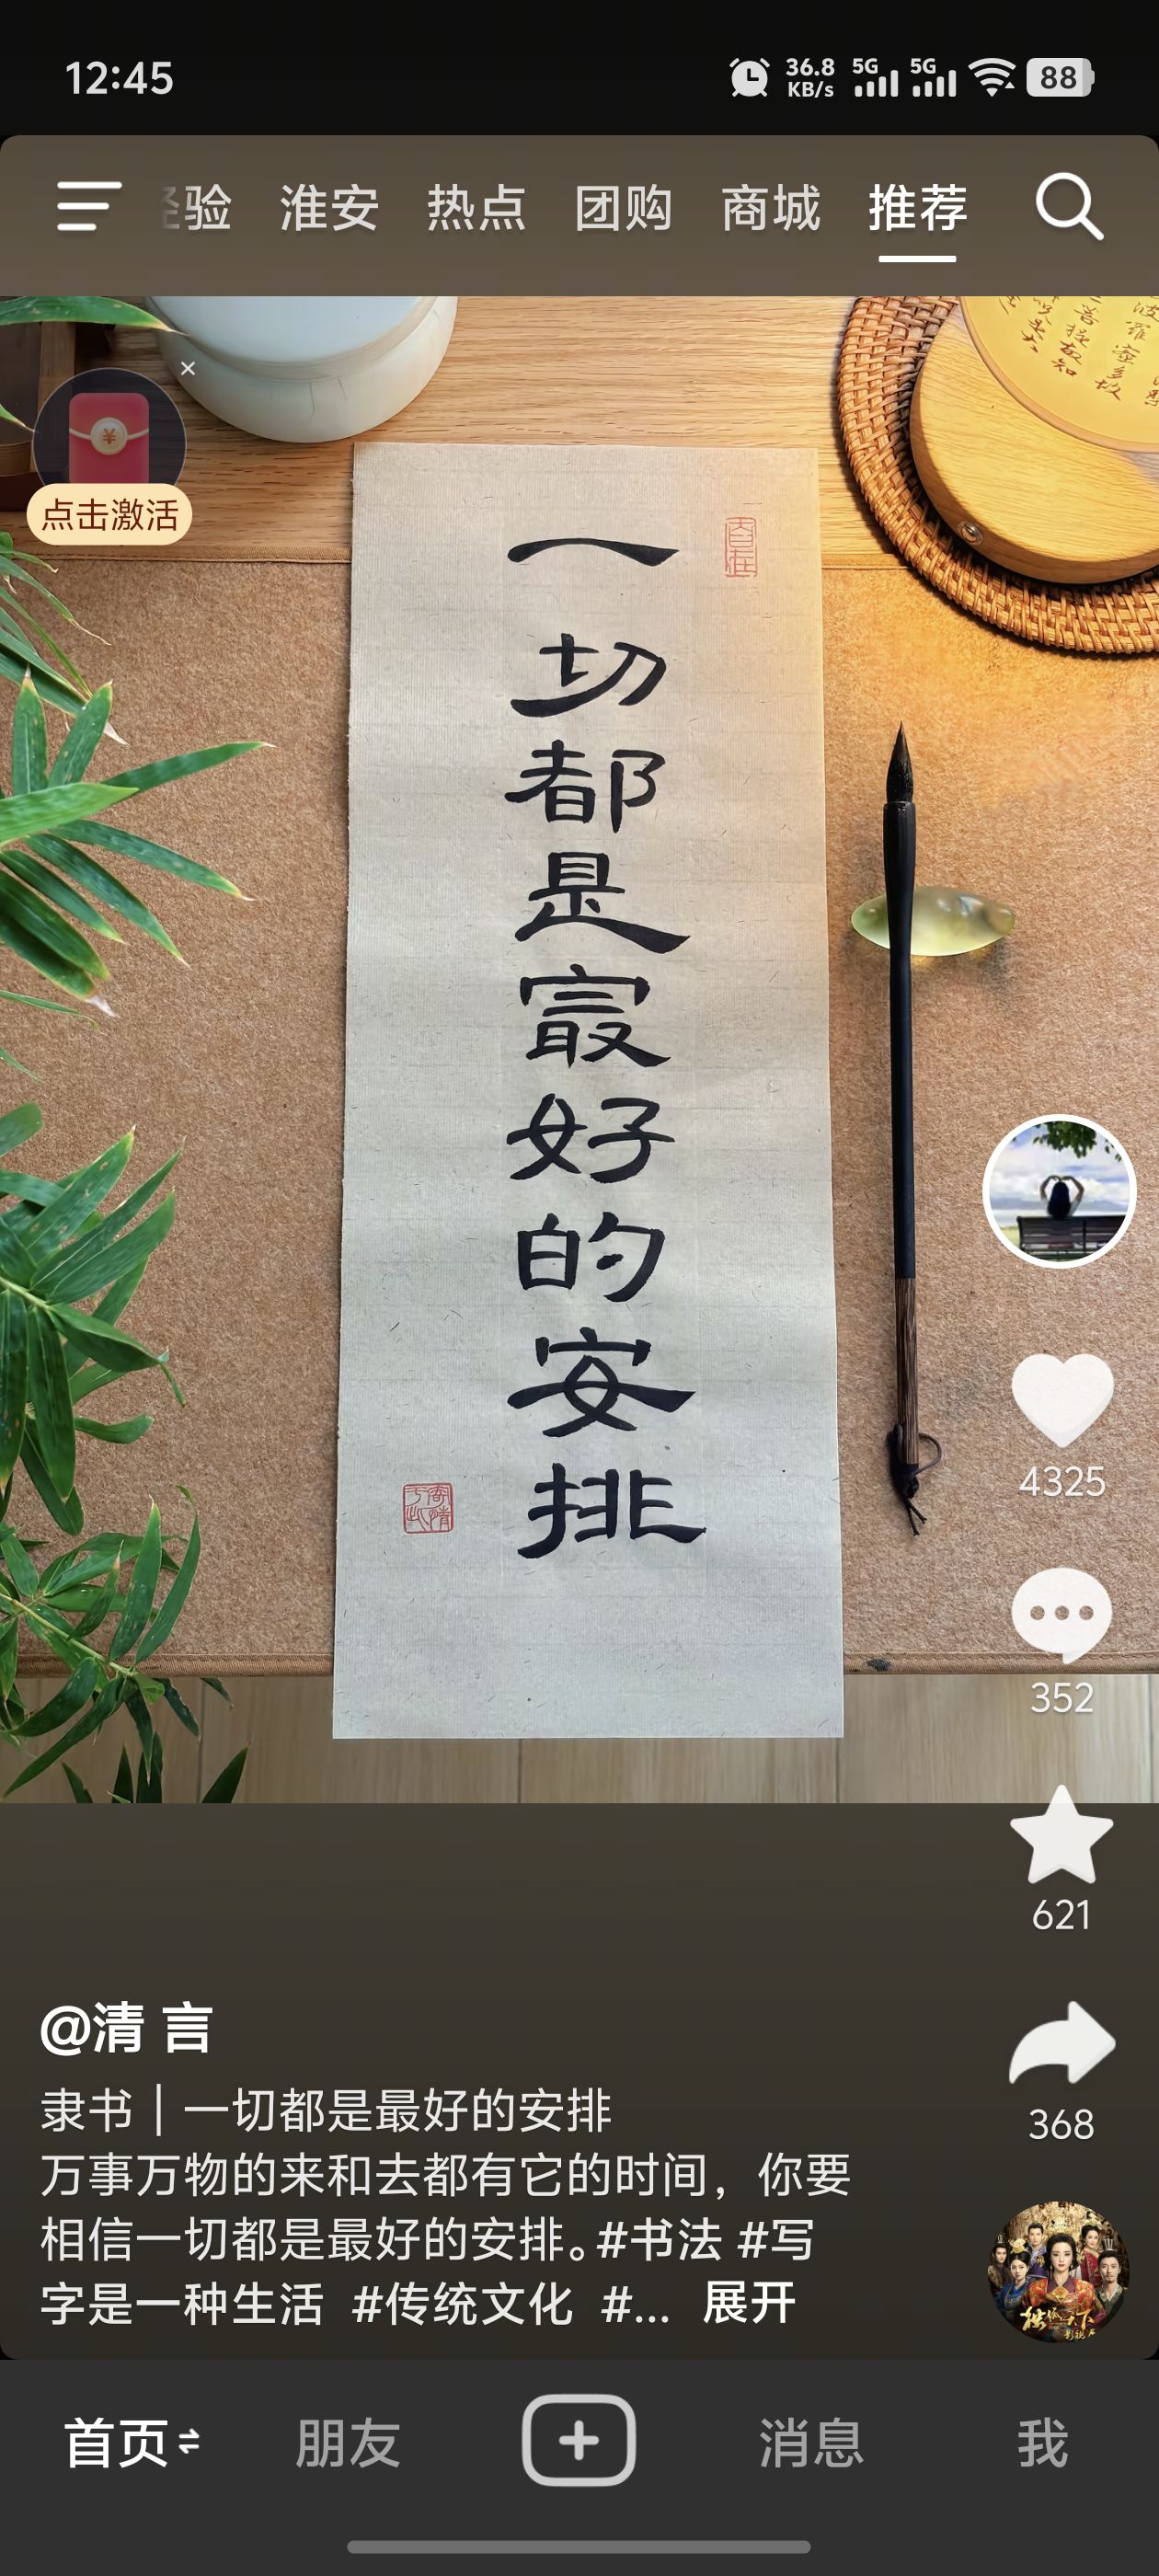 12:45
36.8 KB/s
5G 5G
88
验 淮安 热点 团购 商城 推荐
点击激活
一切都是寂好的安排
4325
352
621
368
@清 言
隶书｜一切都是最好的安排
万事万物的来和去都有它的时间，你要
相信一切都是最好的安排。#书法 #写
字是一种生活 #传统文化 #... 展开
首页 朋友 消息 我